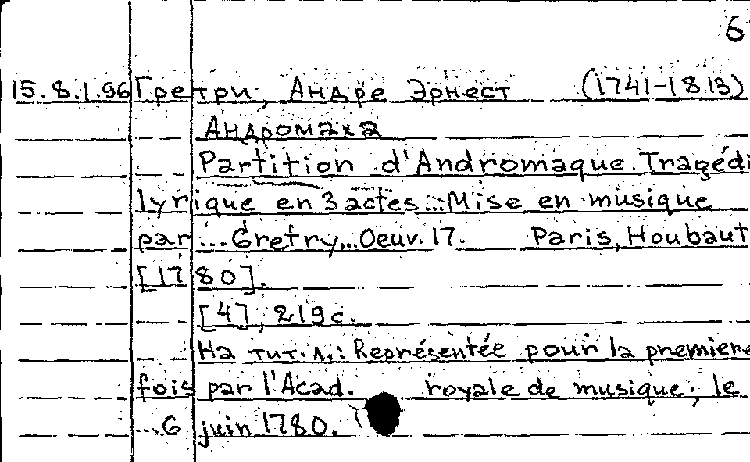 6
15.8.1.96 Гретри, Андре Эрнест (1741-1813)
Андромаха
Partition d'Andromaque. Tragédi
lyrique en 3 actes...Mise en musique
par ... Gretry...Oeuv. 17. Paris, Houbaut
[1780].
[4], 219 с.
На тит. л.: Représentée pour la premiere
fois par l'Acad. royale de musique, le
...6 juin 1780.